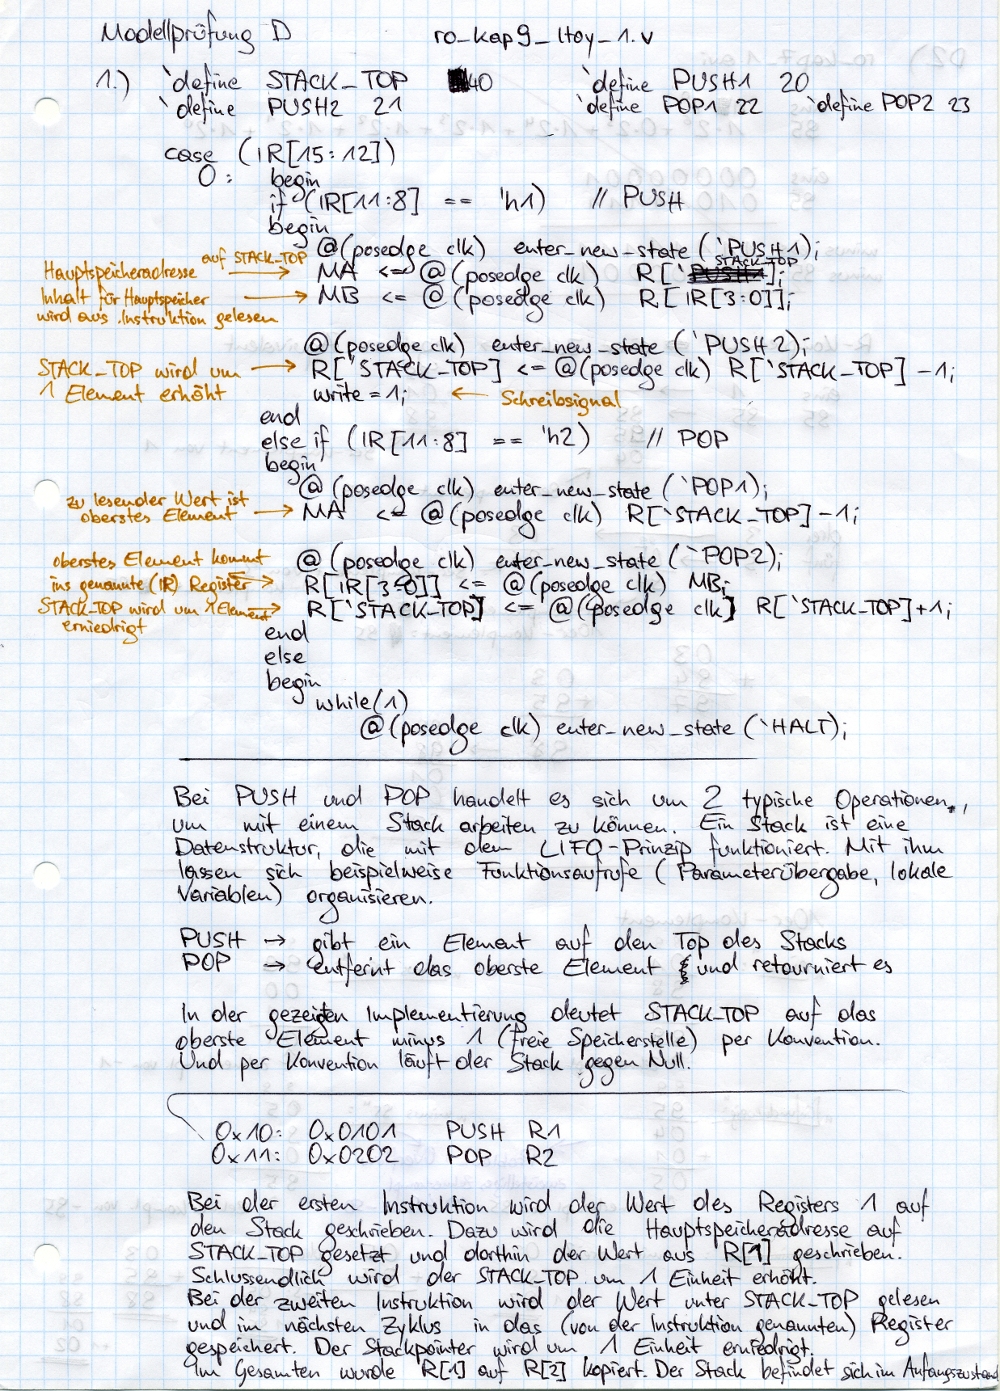 Modellprüfung D ro_kap9_ltoy_1.v
1.) `define STACK_TOP 40 `define PUSH1 20
`define PUSH2 21 `define POP1 22 `define POP2 23
case (IR[15:12])
0: begin
if (IR[11:8] == 'h1) // PUSH
begin
@(posedge clk) enter_new_state (`PUSH1);
Hauptspeicheradresse auf STACK_TOP → MA <= @(posedge clk) R[`STACK_TOP];
Inhalt für Hauptspeicher → MB <= @(posedge clk) R[IR[3:0]];
wird aus Instruktion gelesen
@(posedge clk) enter_new_state (`PUSH2);
STACK_TOP wird um → R[`STACK_TOP] <= @(posedge clk) R[`STACK_TOP] -1;
1 Element erhöht write = 1; ← Schreibsignal
end
else if (IR[11:8] == 'h2) // POP
begin
@(posedge clk) enter_new_state (`POP1);
zu lesender Wert ist
oberstes Element → MA <= @(posedge clk) R[`STACK_TOP] -1;
oberstes Element kommt @(posedge clk) enter_new_state (`POP2);
ins genannte (IR) Register → R[IR[3:0]] <= @(posedge clk) MB;
STACK_TOP wird um 1 Element → R[`STACK_TOP] <= @(posedge clk) R[`STACK_TOP]+1;
erniedrigt
end
else
begin
while(1)
@(posedge clk) enter_new_state (`HALT);
Bei PUSH und POP handelt es sich um 2 typische Operationen,
um mit einem Stack arbeiten zu können. Ein Stack ist eine
Datenstruktur, die mit dem LIFO-Prinzip funktioniert. Mit ihm
lassen sich beispielweise Funktionsaufrufe (Parameterübergabe, lokale
Variablen) organisieren.
PUSH → gibt ein Element auf den Top des Stacks
POP → entfernt das oberste Element und retourniert es
In der gezeigten Implementierung deutet STACK_TOP auf das
oberste Element minus 1 (freie Speicherstelle) per Konvention.
Und per Konvention läuft der Stack gegen Null.
0x10: 0x0101 PUSH R1
0x11: 0x0202 POP R2
Bei der ersten Instruktion wird der Wert des Registers 1 auf
den Stack geschrieben. Dazu wird die Hauptspeicheradresse auf
STACK_TOP gesetzt und dorthin der Wert aus R[1] geschrieben.
Schlussendlich wird der STACK_TOP um 1 Einheit erhöht.
Bei der zweiten Instruktion wird der Wert unter STACK_TOP gelesen
und im nächsten Zyklus in das (von der Instruktion genannten) Register
gespeichert. Der Stackpointer wird um 1 Einheit erniedrigt.
Im Gesamten wurde R[1] auf R[2] kopiert. Der Stack befindet sich im Anfangszustand